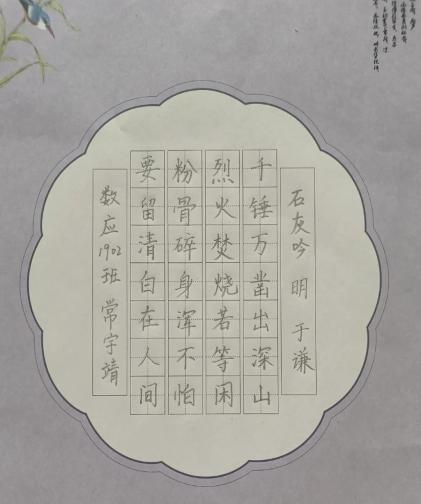 石灰吟 明 于谦
千锤万凿出深山
烈火焚烧若等困
粉骨碎身浑不怕
要留清白在人间
数应1902班 常宇靖